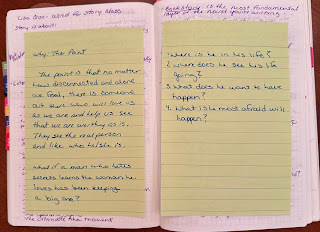 Lisa Cron - Word for Story Class
Story is about:
why: The Point
The point is that no matter
how disconnected and alone
we feel, there is someone
out there who will love us
as we are and help us see
that we are worthy as is.
They see the real person
and like who he/she is.
what if a man who hates
secrets learns the woman he
loves has been keeping
a big one?
The Ultimate Aha moment
Backstory is the most fundamental
layer of the novel you're writing
1. where is he in his life?
2. where does he see his life
going?
3. what does he want to have
happen?
4. what is he most afraid will
happen?